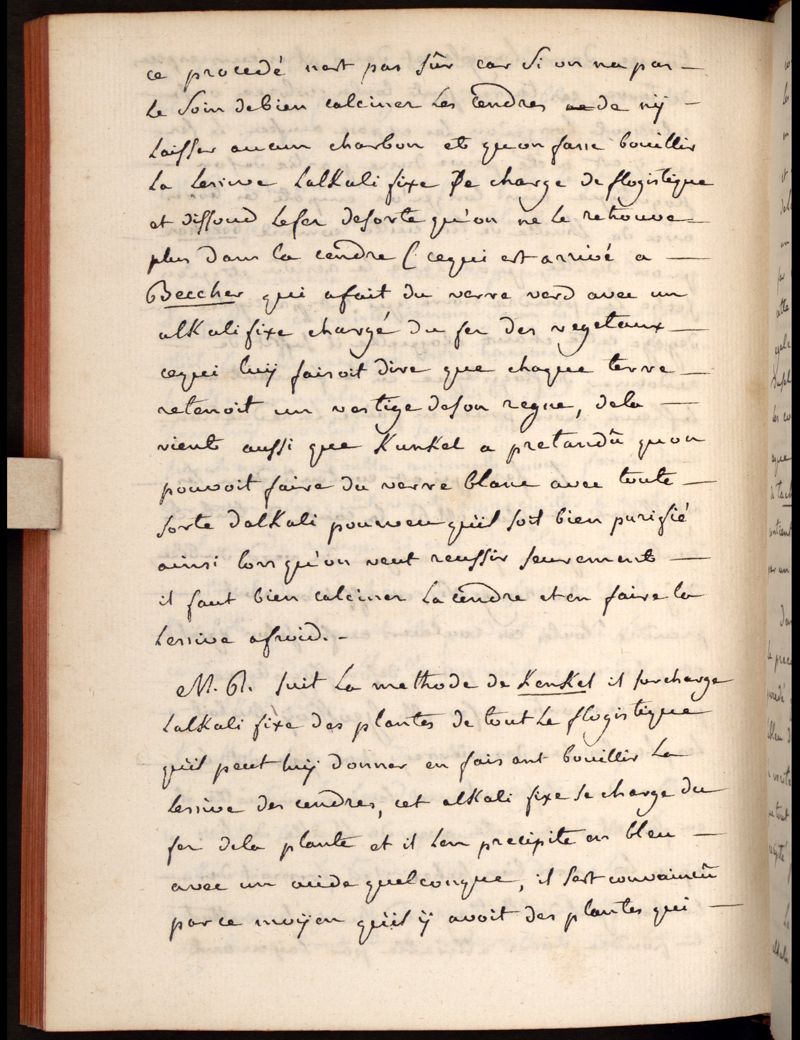 ce procedé n'est pas sûr car si on na pas —
le soin debien calciner les cendres de n'ÿ —
laisser aucun charbon et qu'on fasse bouillir
la lessive lalKali fixe se charge de flogistique
et dissoud lefer desorte qu'on ne le retrouve —
plus dans la cendre ( cequi est arrivé a —
Beccher qui afait du verre verd avec un
alKali fixe chargé du fer des vegetaux —
cequi luÿ faisoit dire que chaque terre —
retenoit un vestige deson regne, dela —
vient aussi que Kunkel a pretandû quon
pouvoit faire du verre blanc avec toute —
sorte dalKali pourveu quil soit bien purifié
ainsi lors qu'on veut reussir seurement —
il faut bien calciner la cendre et en faire la
lessive afroid. -
M. R. suit la methode de KenKel il surcharge
lalKali fixe des plantes de tout le flogistique
quil peut luÿ donner en faisant bouillir la
lessive des cendres, cet alKali fixe se charge du
fer dela plante et il len precipite en bleu —
avec un acide quelconque, il sest convaincû
par ce moÿen quil ÿ avoit des plantes qui —